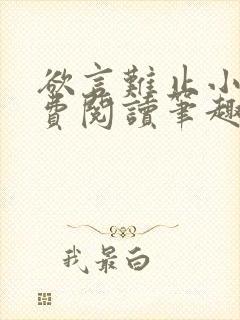 欲言難止小
費閱讀筆趣
我最白